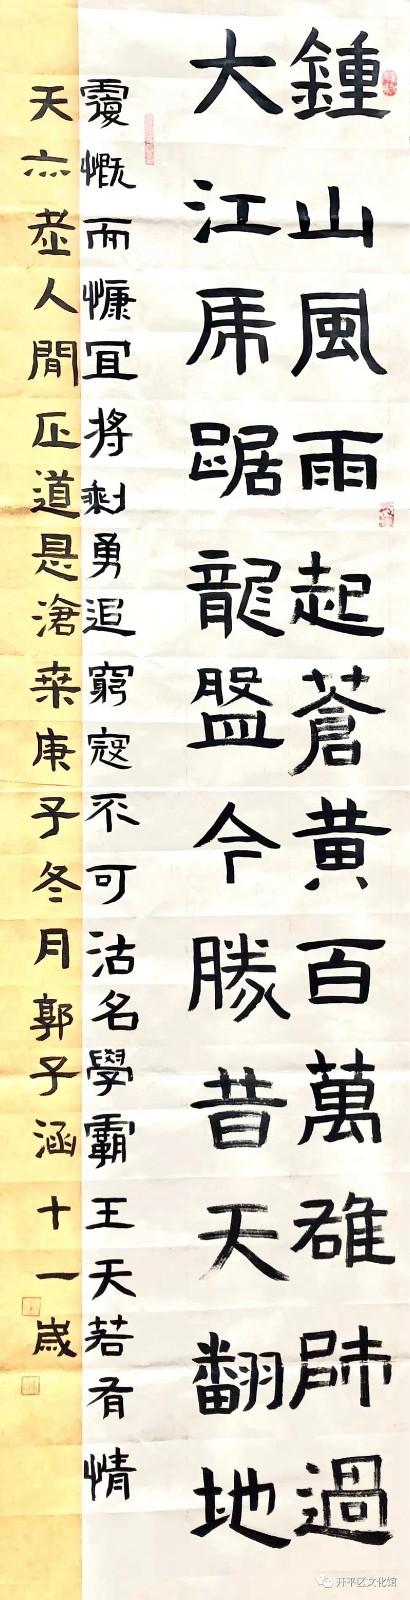 鍾山風雨起蒼黄百萬雄師過
大江虎踞龍盤今勝昔天翻地
覆慨而慷宜將剩勇追窮寇不可沽名學霸王天若有情
天亦老人間正道是滄桒庚子冬月郭子涵十一歲
开平区文化馆